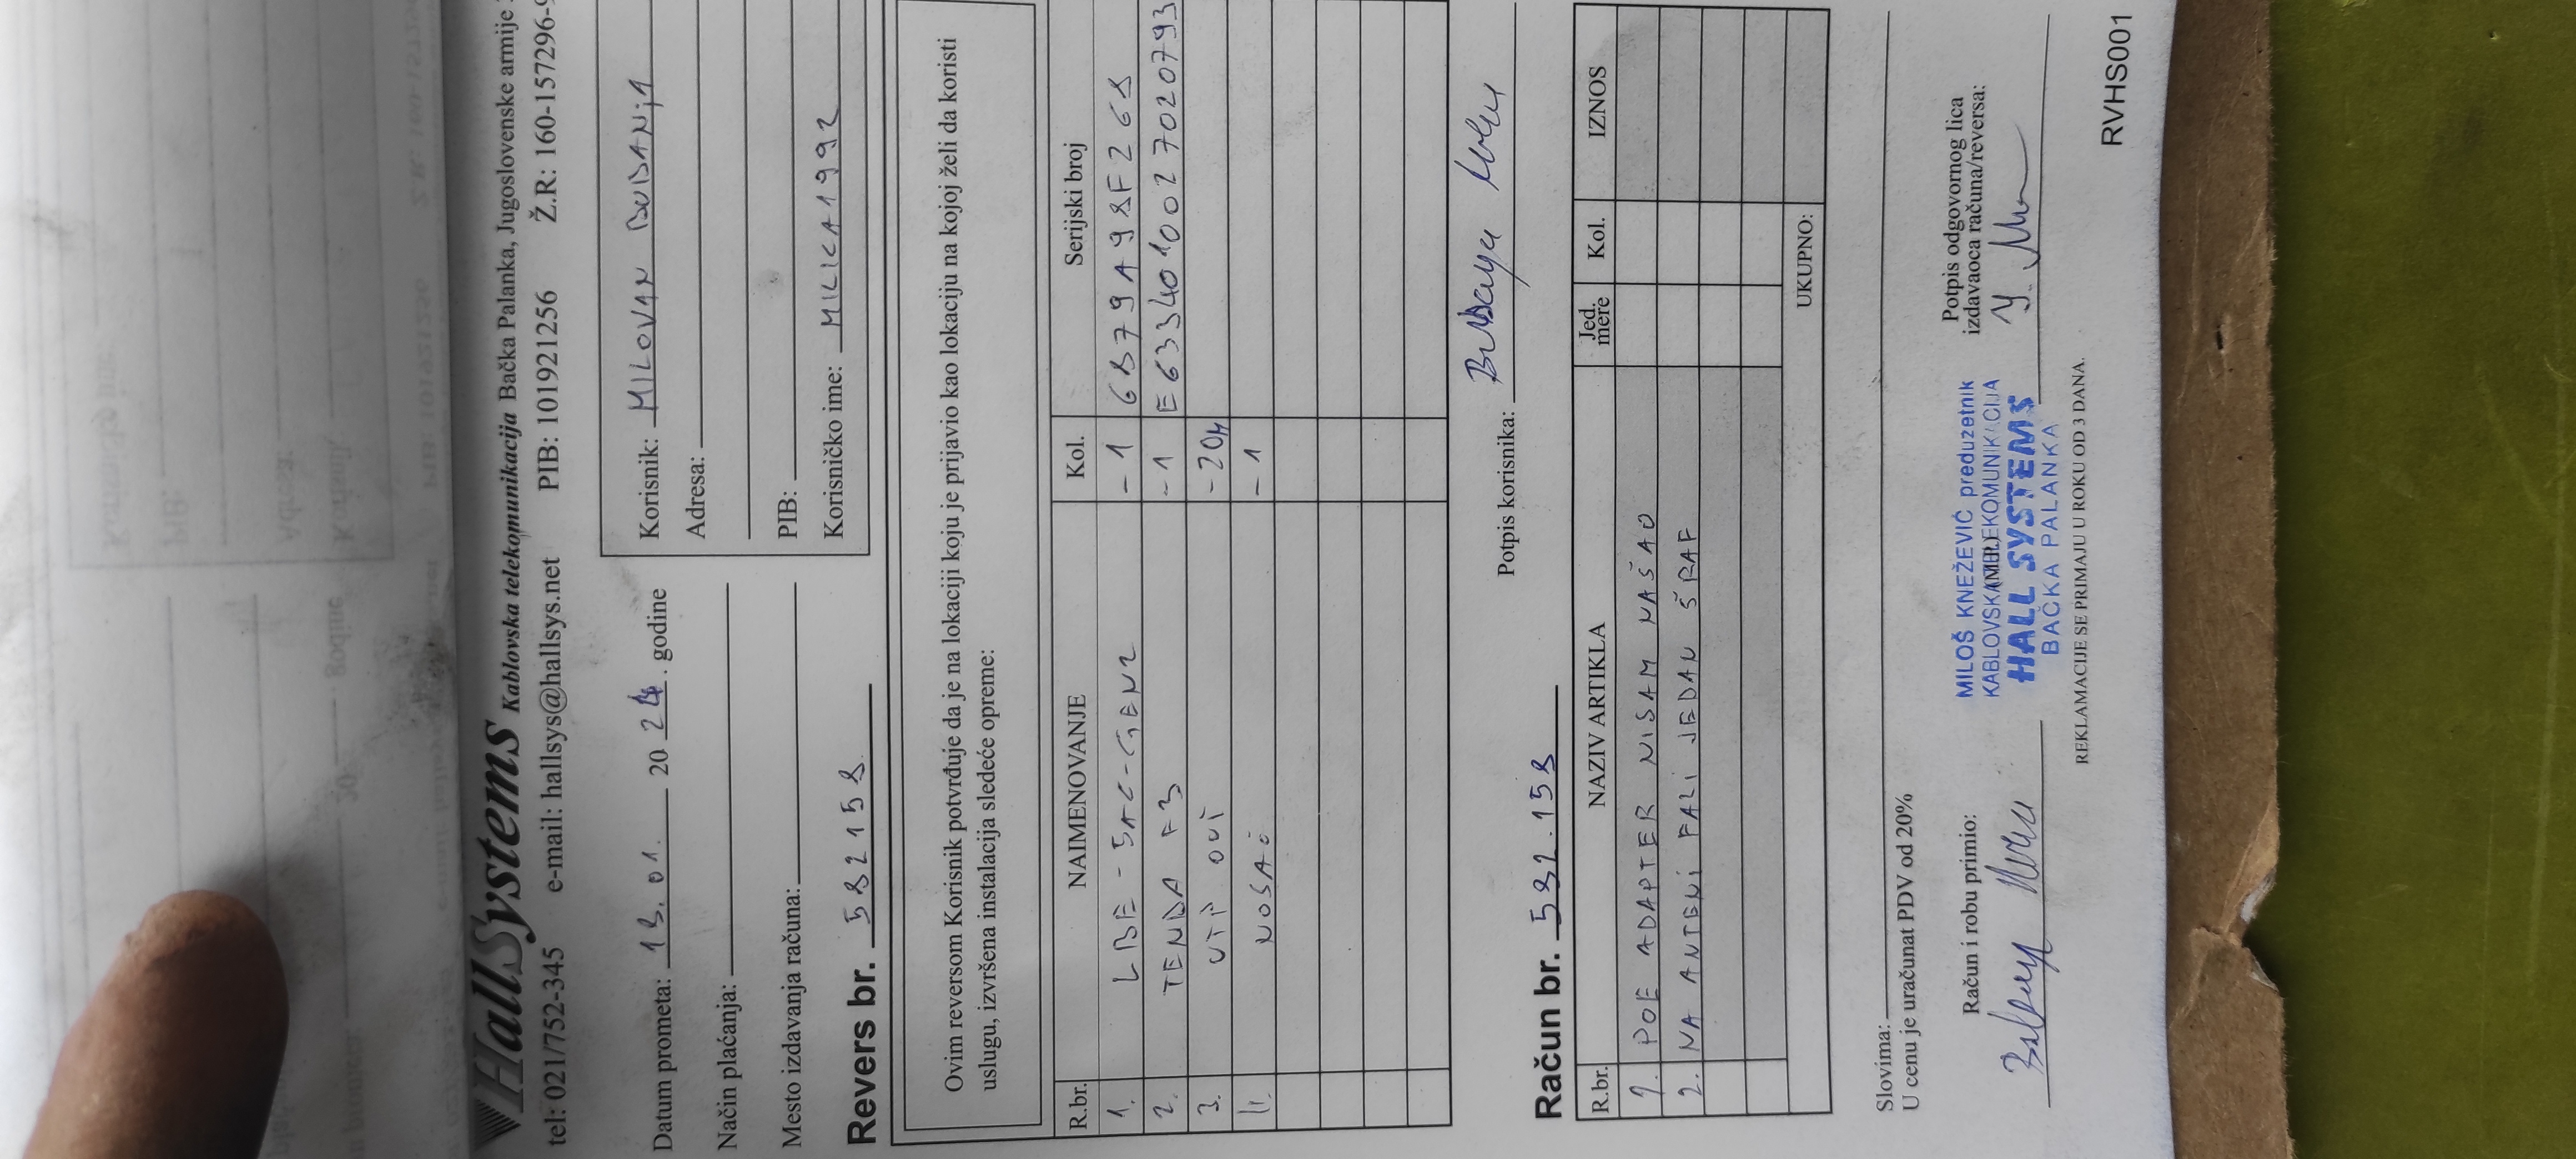 HallSystems Kablovska telekomunikacija Bačka Palanka, Jugoslovenske armije
tel: 021/752-345 e-mail: hallsys@hallsys.net PIB: 101921256 Ž.R: 160-157296-
Datum prometa: 13. 01. 2024. godine
Način plaćanja:
Mesto izdavanja računa:
Korisnik: MILOVAN BUDANJA
Adresa:
PIB:
Korisničko ime: MILICA1992
Revers br. 582158
Ovim reversom Korisnik potvrđuje da je na lokaciji koju je prijavio kao lokaciju na kojoj želi da koristi
uslugu, izvršena instalacija sledeće opreme:
R.br. NAIMENOVANJE Kol. Serijski broj
1. LBE-5AC-GEN2 -1 68D79A98F268
2. TENDA F3 -1 E6334010027020793
3. UTP OUT -20M
4. NOSAČ -1
Potpis korisnika:
Račun br. 582.158
R.br. NAZIV ARTIKLA Jed. mere Kol. IZNOS
1. POE ADAPTER NISAM NAŠAO
2. NA ANTENI FALI JEDAN ŠRAF
UKUPNO:
Slovima:
U cenu je uračunat PDV od 20%
Račun i robu primio:
(M.P.)
MILOŠ KNEŽEVIĆ preduzetnik
KABLOVSKA TELEKOMUNIKACIJA
HALL SYSTEMS
BAČKA PALANKA
Potpis odgovornog lica
izdavaoca računa/reversa:
REKLAMACIJE SE PRIMAJU U ROKU OD 3 DANA.
RVHS001